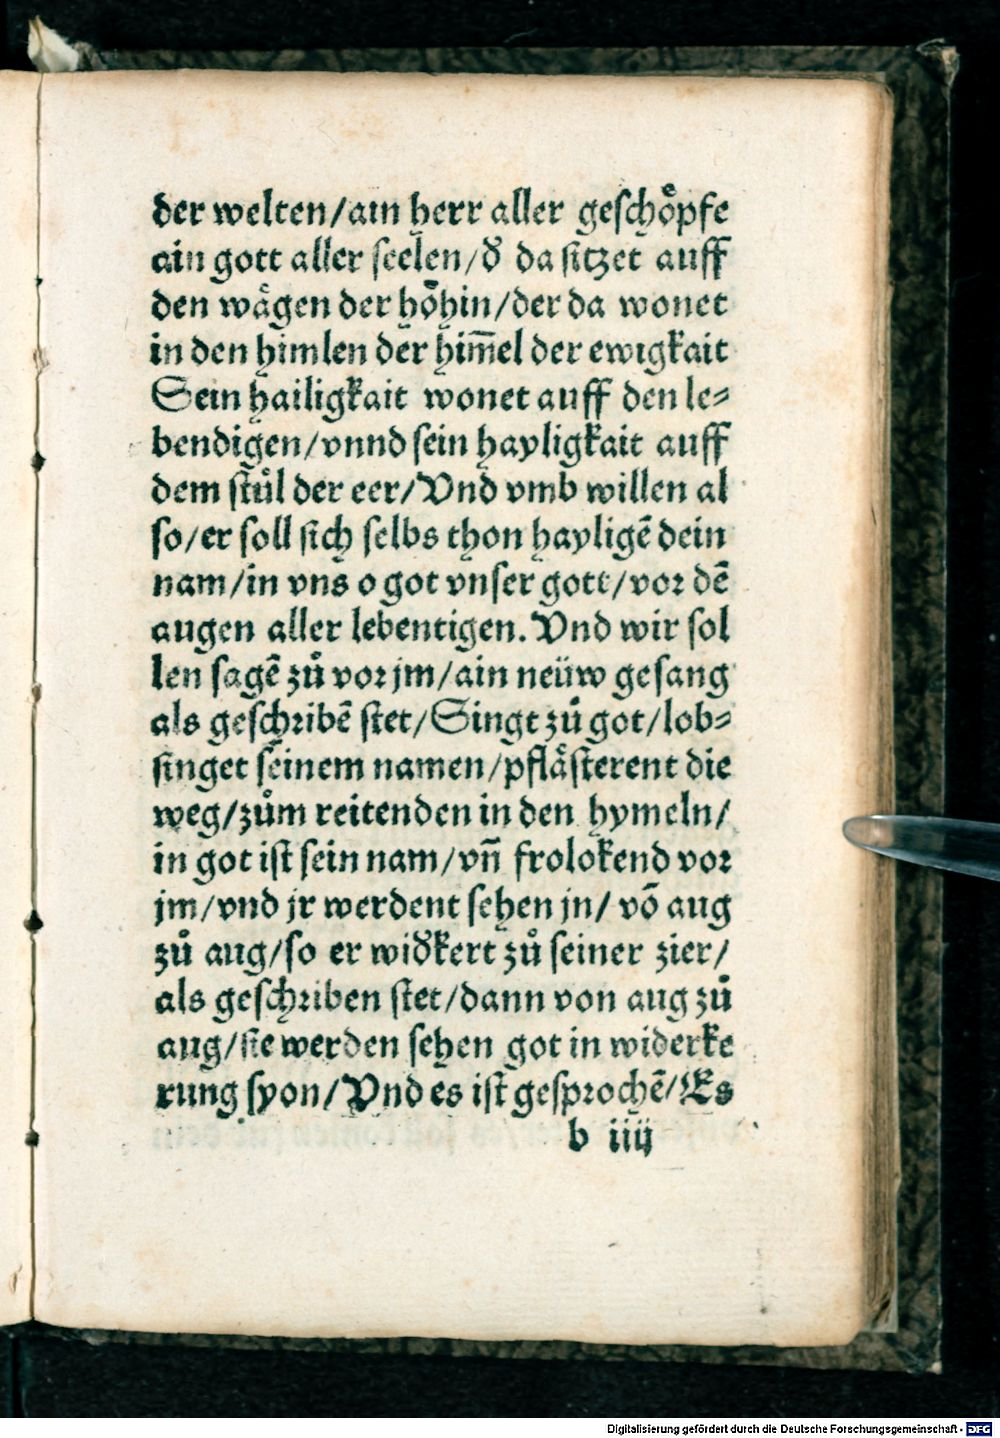 der welten/ain herr aller geschoͤpfe
ain gott aller seelen/đ da sitzet auff
den waͤgen der hoͤhin/der da wonet
in den himlen der him̄el der ewigkait
Sein hailigkait wonet auff den le⸗
bendigen/vnnd sein hayligkait auff
dem stuͦl der eer/Vnd vmb willen al
so/er soll sich selbs thon hayligē dein
nam/in vns o got vnser gott/vor dē
augen aller lebentigen. Vnd wir sol
len sagē zuͦ vor jm/ain neüw gesang
als geschribē stet/Singt zuͦ got/lob⸗
singet seinem namen/pflaͤsterent die
weg/zuͦm reitenden in den hymeln/
in got ist sein nam/vn̄ frolokend vor
jm/vnd jr werdent sehen jn/ vō aug
zuͦ aug/so er wiđkert zuͦ seiner zier/
als geschriben stet/dann von aug zuͦ
aug/sie werden sehen got in widerke
rung syon/Vnd es ist gesprochē/Es
b iiij
Digitalisierung gefördert durch die Deutsche Forschungsgemeinschaft - DFG